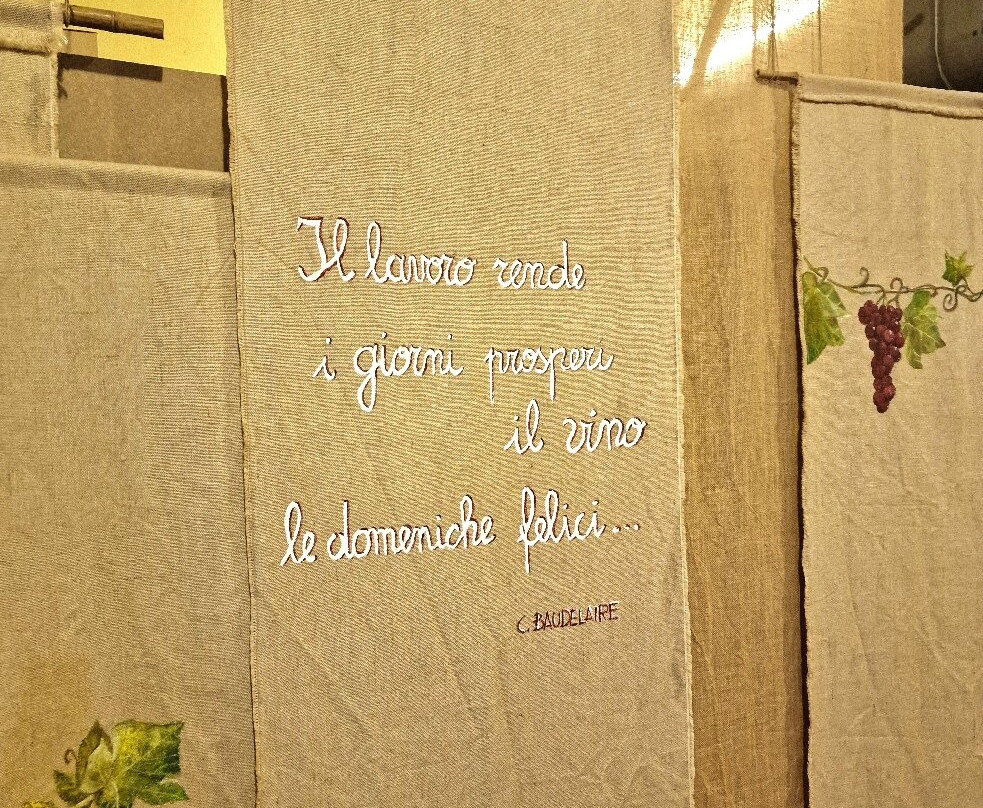 Il lavoro rende
i giorni prosperi
il vino
le domeniche felici...
C. BAUDELAIRE